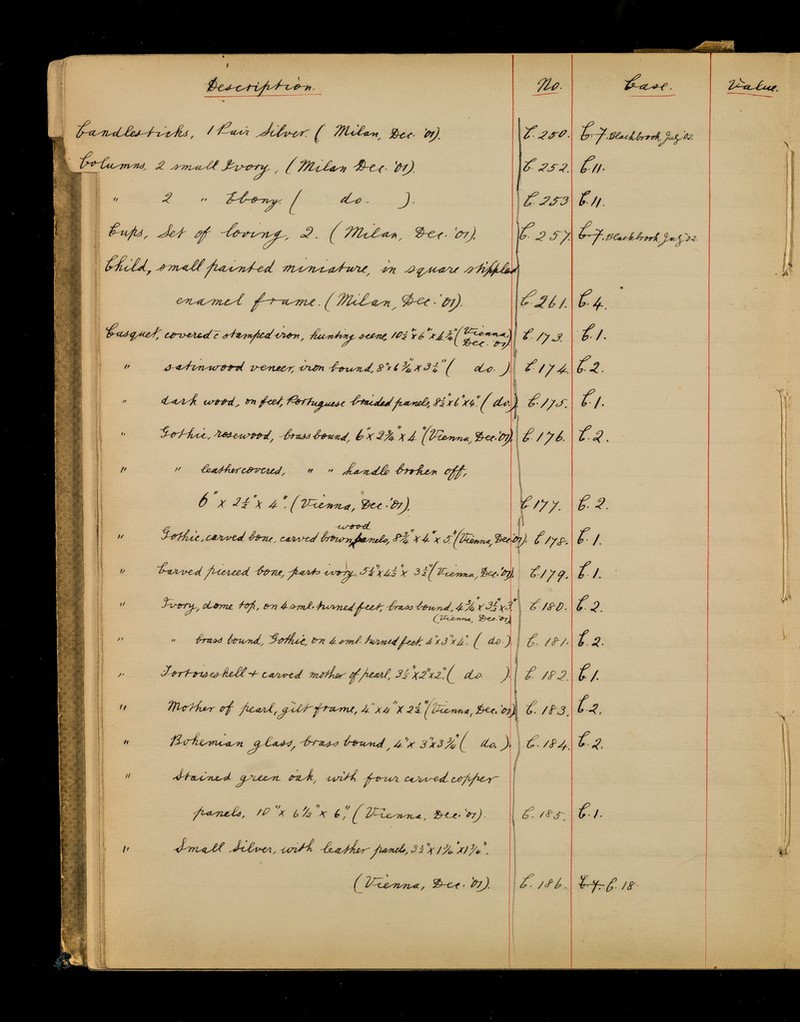 Description. No. Case. Value.
Candlesticks, 1 Pair Silver. ( Milan, Dec. '01). C. 250. C. 7. Blackbrook, July '02.
Columns, 2 small Ivory, ( Milan Dec. '01). C. 252. C. 11.
" 2 " Ebony. ( do. ). C. 253 C. 11.
Cups, Set of loving, 2. ( Milan, Dec. '01). C. 257. C. 7. Blackbrook, July '02
Child, small painted miniature, in square stippled
enamel frame. ( Milan, Dec. '01). C. 261. C. 4.
Casquet, covered c̄ stamped iron, hunting scene, 10½" x 6" x 4¾" (Vienna, Dec. '01) C. 173. C. 1.
" satinwood veneer, iron bound, 8" x 6¾" x 3½" ( do. ) C. 174. C. 2.
" dark wood, on feet, Portuguese braided panels, 8½" x 6" x 4" ( do.) C. 175. C. 1.
" Gothic, rosewood, brass bound, 6" x 2¾" x 4." (Vienna, Dec. '01) C. 176. C. 2.
" " leather covered, " " handle broken off,
6" x 2½" x 4". (Vienna, Dec. '01). C. 177. C. 2.
wood
" Gothic, carved bone, carved brown panels, 8¾" x 4" x 5." (Vienna, Dec '01). C. 178. C. 1.
" Carved pierced bone, parts ivory, 5½" x 4½" x 3½" (Vienna, Dec. '01). C. 179. C. 1.
" Ivory, dome top, on 4 sml. turned feet, brass bound, 4¾" x 3½" x 3." C. 180. C. 2.
(Vienna, Dec. '01)
" " brass bound, Gothic, on 4 sml. turned feet, 4" x 3" x 4". ( do. ). C. 181. C. 2.
" Tortoiseshell + carved mother of pearl, 3½" x 2" x 2". ( do ). C. 182. C. 1.
" Mother of pearl, gilt frame, 4" x 4" x 2½" (Vienna, Dec. '01) C. 183. C. 2.
" Bohemian glass, brass bound, 4" x 3" x 3¾" ( do. ). C. 184. C. 2.
" Stained green oak, with four carved copper
panels, 10" x 6½" x 6", ( Vienna, Dec. '01). C. 185. C. 1.
" Small Silver, with leather panels, 3½" x 1¾" x 1¾".
(Vienna, Dec. '01). C. 186. C. 7. C. 18.